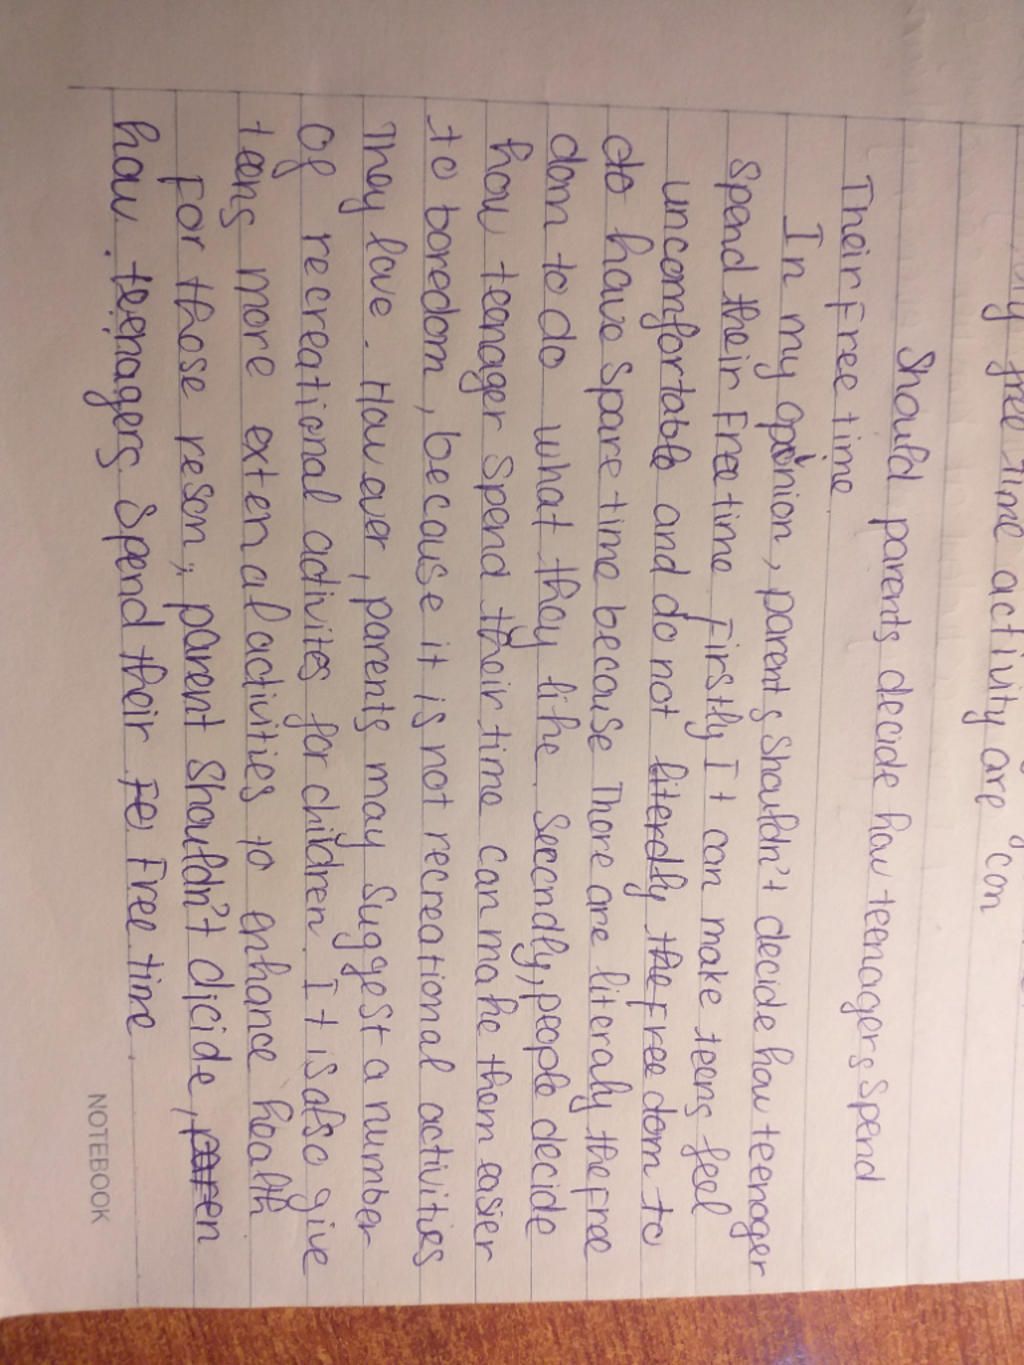 free time activity are con
Should parents decide how teenagers spend
Their Free time
In my opinion, parents shouldn't decide how teenager
spend their Free time Firstly It can make teens feel
uncomfortable and do not literdly the free dom to
do have spare time because There are literaly the free
dom to do what they like. Secondly, people decide
how teenager spend their time can make them easier
to boredom, because it is not recreational activities
They love. However, parents may suggest a number
Of recreational activites for children. It is also give
teens more external activities to enhance health
For those reson, parent shouldn't dicide, paren
how teenagers spend their Fe Free time.
NOTEBOOK